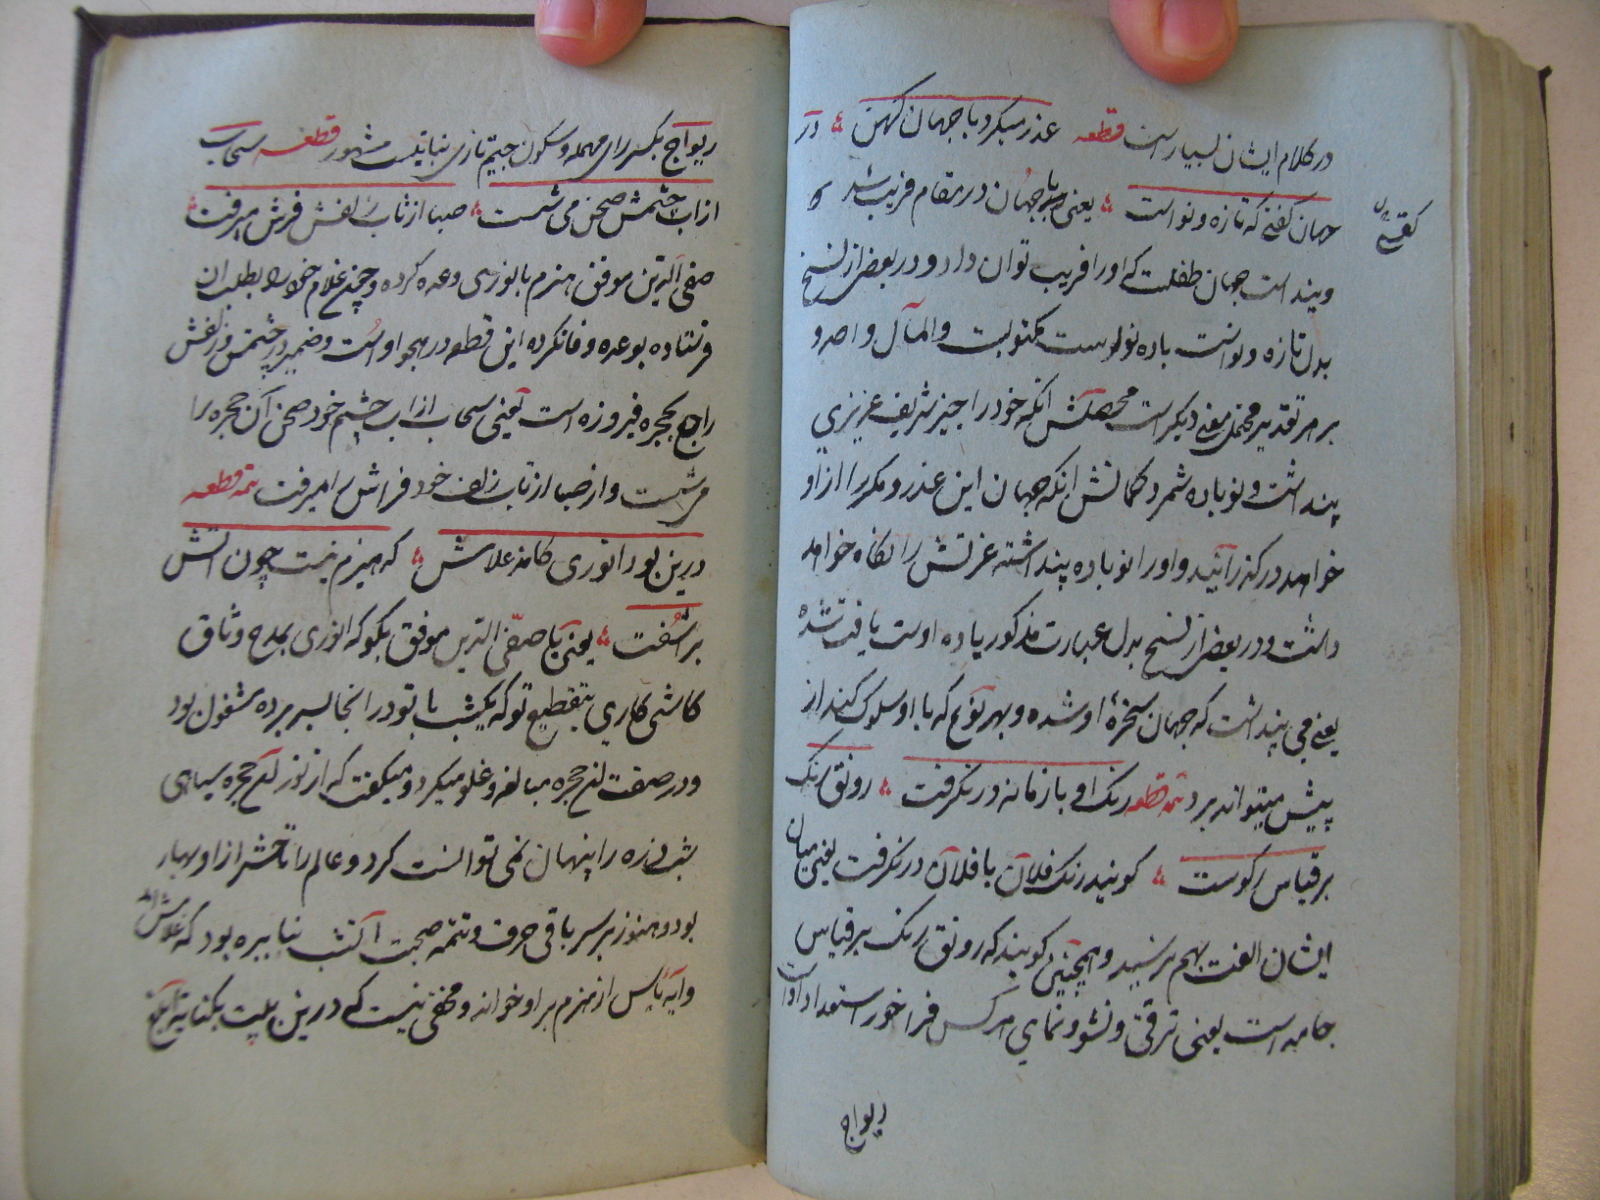 در کلام ایشان بسیار است قطعه عذر میکرد با جهان کهن در
جهان گفتی که تازه و نو است یعنی با جهان در مقام فریب شد
کفتی
و پنداشت جهان طفلست که او را فریب توان داد و در بعض از نسخ
بدل تازه و نو است باده نو اوست مکتوبست والمآل واحد و
بر هر تقدیر محتمل معنی دیگر است محصلش آنکه خود را چیز شریف عزیزی
پنداشت و نوباده شمرد کمانش آنکه جهان این عذر و مکر را از او
خواهد در گذرانید و او را نوباده پنداشته عزتش را نگاه خواهد
داشت و در بعض از نسخ بدل عبارت مذکور یاده اوست یافت شده
یعنی می پنداشت که جهان سخرۀ او شده و بهر نوع که با او سلوک کند از
پیش میتواند برد تتمه قطعه رنک او با زمانه در نگرفت رونق رنک
بر قیاس رکوست کویند رنک فلان با فلان در نگرفت یعنی میان
ایشان الفت بهم نرسید و همچنین کویند که رونق رنک بر قیاس
جامه است یعنی ترقی و نشو و نمای هر کس فراخور استعداد
ریواج
ریواج بکسر رای مهمله و سکون جیم تازی نباتیست مشهور قطعه سحاب
از اب چشمش صحن می شست صبا از تاب زلفش فرش میرفت
صفی الدین موفق هیزم بانوری وعده کرده و چند غلام خود را بطلب ان
فرستاده بوعده وفا نکرده این قطعه در هجو اوست و ضمیر در چشمش و زلفش
راجع بحجره فیروزه است یعنی سحاب از اب چشم خود صحن آن حجره را
می شست و از صبا از تاب زلف خود فراش را میرفت تتمه قطعه
درین بود انوری کامد غلامش که هیزم نیست چون آتش
بر آشفت یعنی با صفی الدین موفق بگو که انوری بمدح وثاق
کاشی کاری بتقطیع تو که یکشب با تو در انجا بسر برده مشغول بود
و در صفت ان حجره مبالغه و غلو میکرد و میکفت که از نور ان حجره سیاهی
شب روزه را پنهان نمی توانست کرد و عالم را تا حشر از او بهار
بود و هنوز بر سر باقی حرف و تتمه صحبت آنشب بود که غلامش
و آیه یأس از هیزم بر او خواند و مخفی نیست که درین بیت بکنایه ابلغ